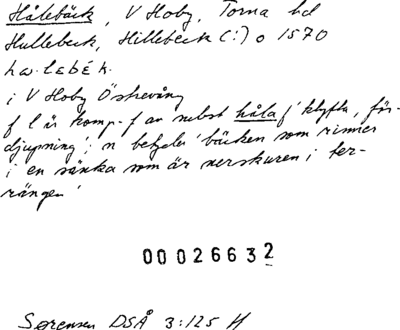 Hålebäck, V Hoby, Torna hd
Hullebeck, Hillebeck (:) o 1570
hω.lεbέk.
i V Hoby Östrevång
f l är komp-f av nebst håla 'klyfta, för-
djupning'; n betyder 'bäcken som rinner
i en sänka som är nerskuren i ter-
rängen'
00026632
Sørensen DSÅ 3:125 H